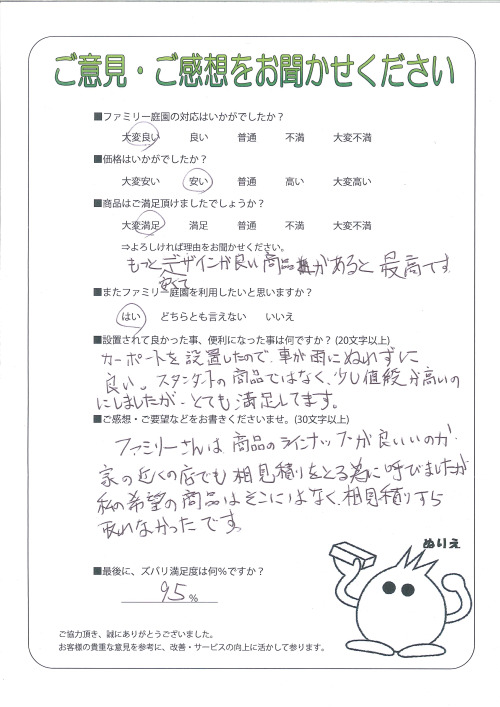 ご意見・ご感想をお聞かせください
■ファミリー庭園の対応はいかがでしたか？
大変良い 良い 普通 不満 大変不満
■価格はいかがでしたか？
大変安い 安い 普通 高い 大変高い
■商品はご満足頂けましたでしょうか？
大変満足 満足 普通 不満 大変不満
⇒よろしければ理由をお聞かせください。
もっとデザインが良い商品があると最高です
安くて
■またファミリー庭園を利用したいと思いますか？
はい どちらとも言えない いいえ
■設置されて良かった事、便利になった事は何ですか？(20文字以上)
カーポートを設置したので、車が雨にぬれずに
良い。スタンダートの商品ではなく、少し値段分高いの
にしましたが、とても満足してます。
■ご感想・ご要望などをお書きくださいませ。(30文字以上)
ファミリーさんは商品のラインナップが良いいのか、
家の近くの店でも相見積りをとる為に呼びましたが
私の希望の商品はそこにはなく、相見積りすら
取れなかったです。
ぬりえ
■最後に、ズバリ満足度は何％ですか？
95%
ご協力頂き、誠にありがとうございました。
お客様の貴重な意見を参考に、改善・サービスの向上に活かして参ります。